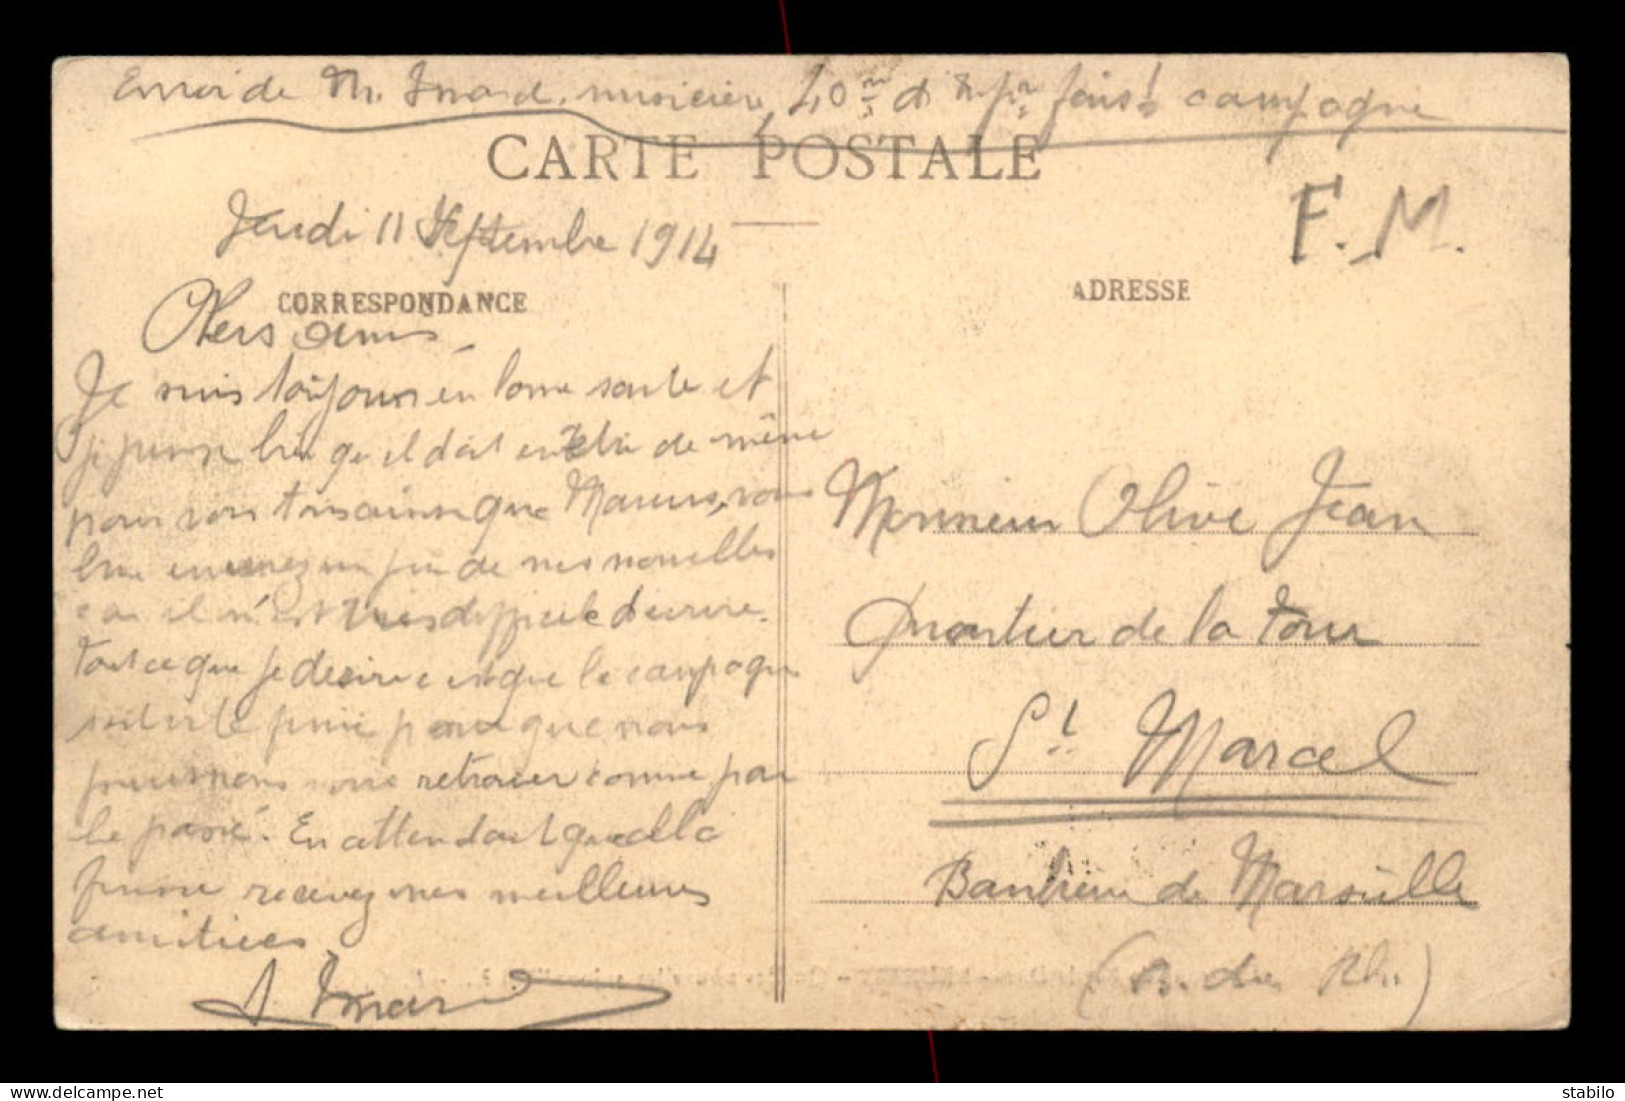 Envoi de M. Inard, musicien, 40me d'
campagne
CARTE POSTALE
F. M.
Jeudi 11 Septembre 1914
CORRESPONDANCE
Chers Amis,
Je suis toujours en bonne sante et
je pense bien qu'il doit en être de même
pour vous tous ainsi que Marius, vous
envoyez un peu de vos nouvelles
car il n'est très difficile d'ecrire.
tout ce que je desire c'est que la campagne
soit vite finie pour que nous
puissions nous retrouver comme par
le passé. En attendant qu'elle
finisse recevez mes meilleures
amitiées.
Inard
ADRESSE
Monsieur Olive Jean
Quartier de la tour
St Marcel
Banlieue de Marseille
(B. du Rh.)
stabilo